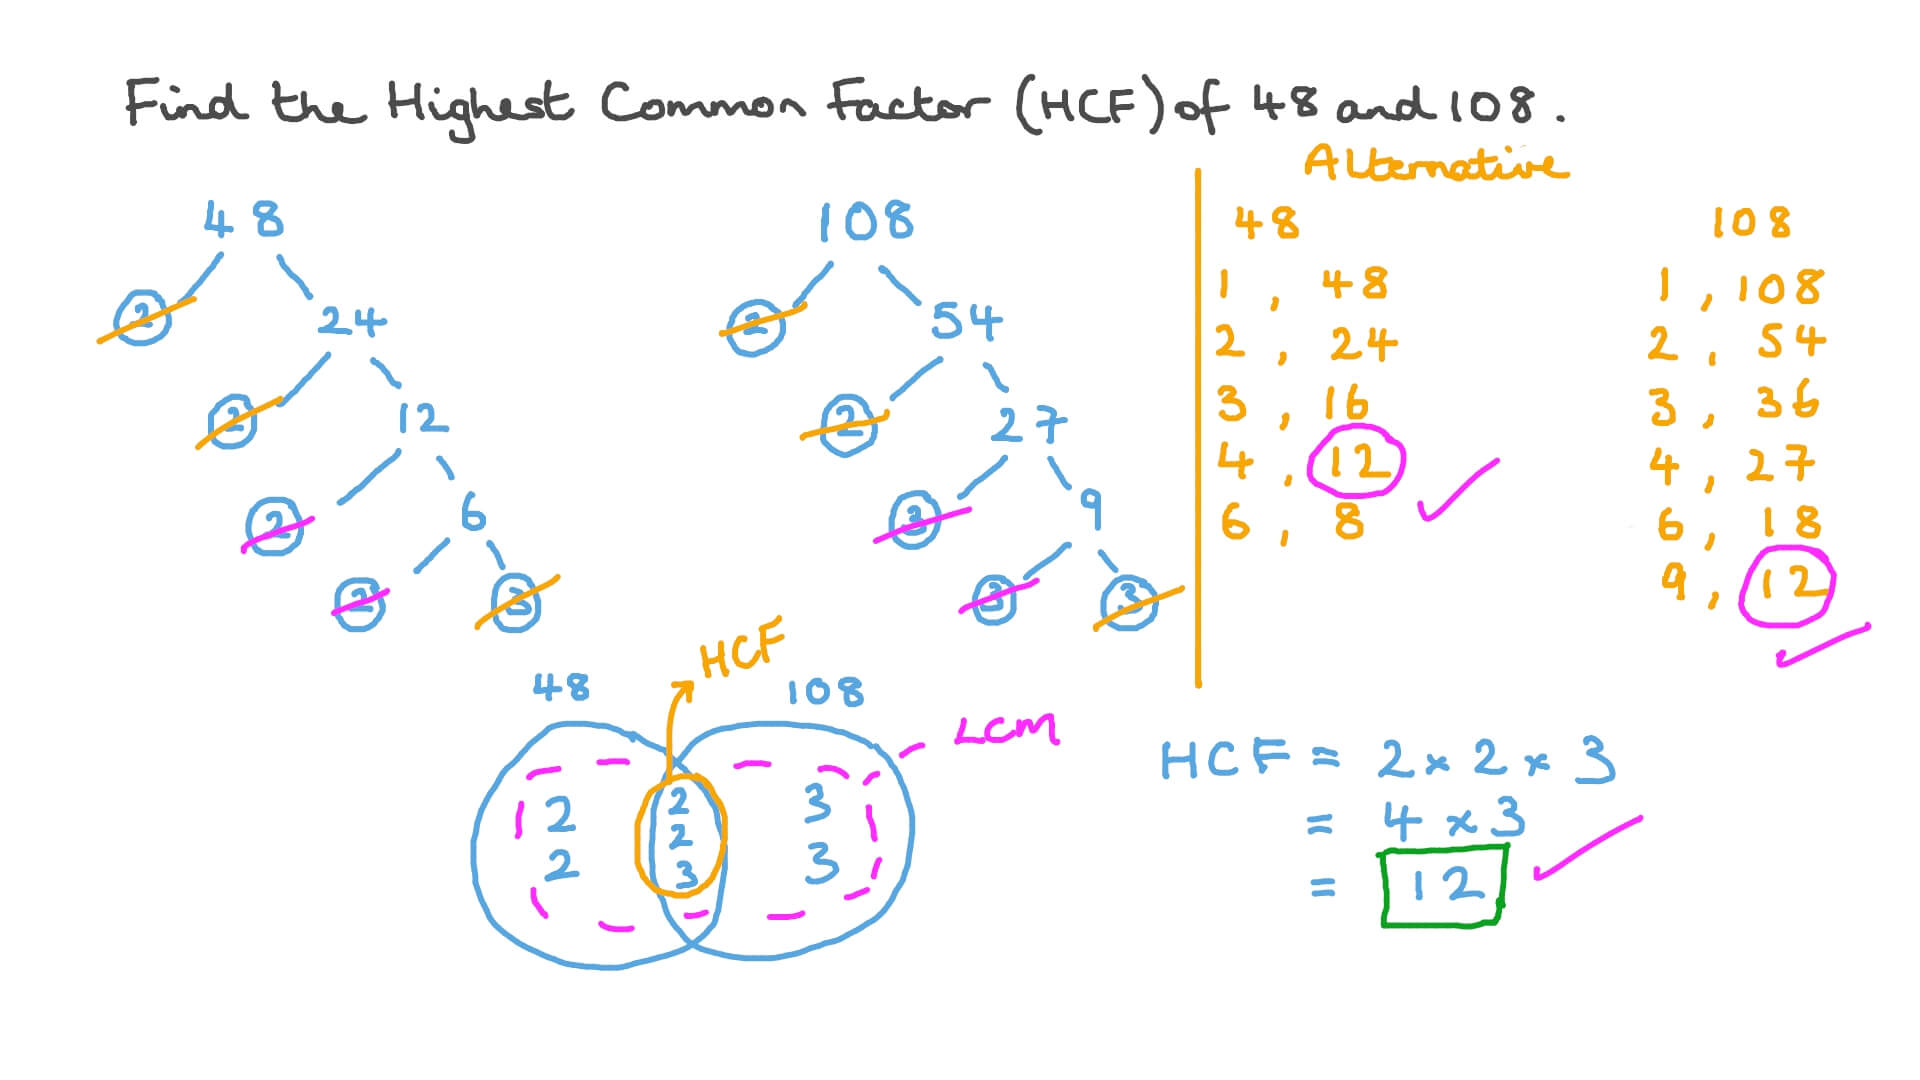 Find the Highest Common Factor (HCF) of 48 and 108.
48
2
24
2
12
2
6
2
3
108
2
54
2
27
3
9
3
3
Alternative
48
1, 48
2, 24
3, 16
4, 12
6, 8
108
1, 108
2, 54
3, 36
4, 27
6, 18
9, 12
HCF
48
108
LCM
2
2
2
2
3
3
3
HCF = 2 × 2 × 3
= 4 × 3
= 12